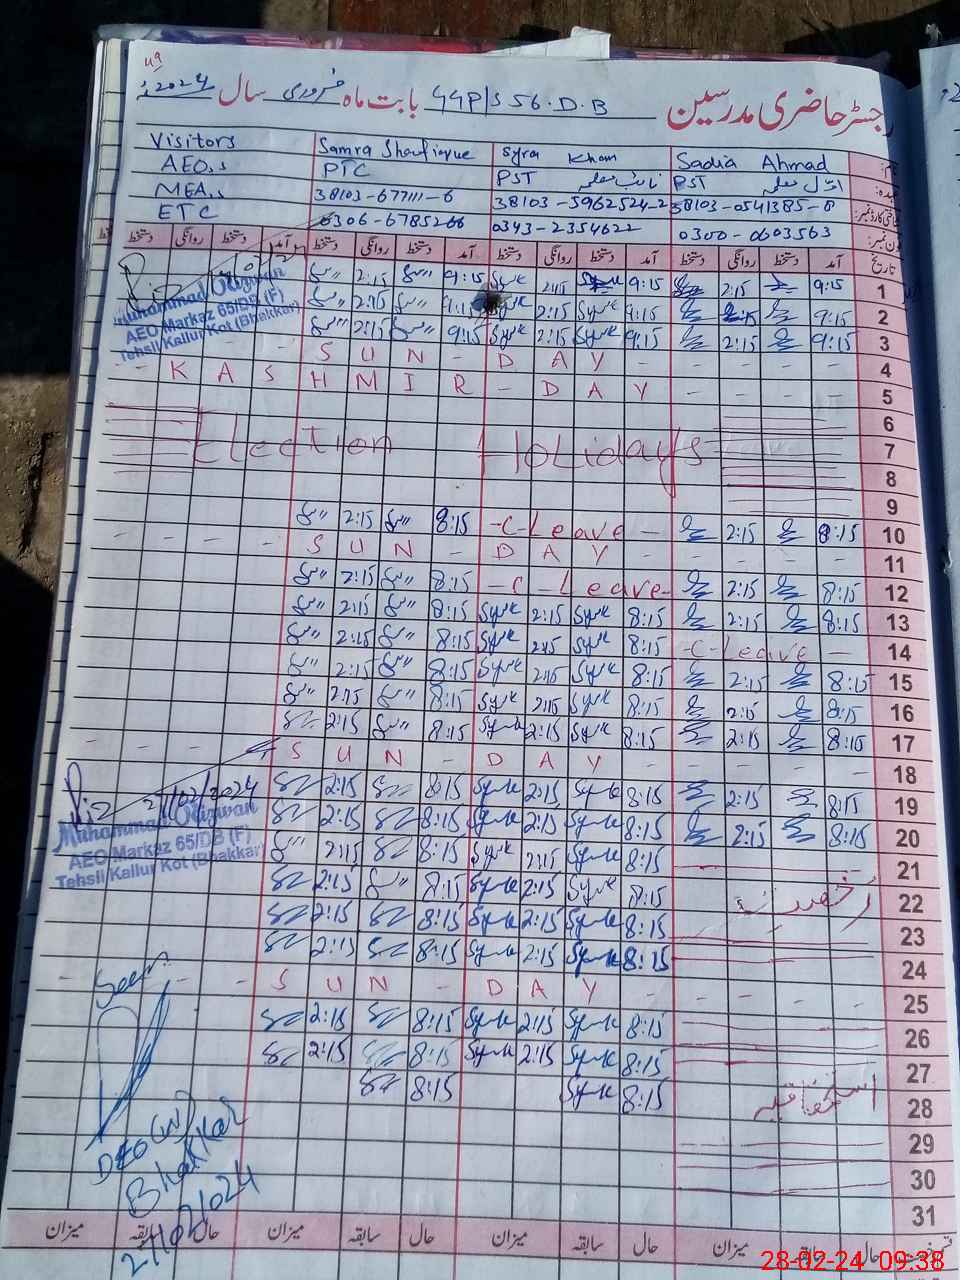 رجسٹر حاضری مدرسین GGP/S 56.D.B بابت ماہ فروری سال 2024
Visitors Samra Shoufiaque Syra Kham Sadia Ahmad
AEO,s PTC PST نائب معلمہ PST اول معلمہ
MEA,s 38103-677111-6 38103-5962524-2 38103-0541385-8
ETC 0306-6785266 0343-2354622 0300-0603563
تاریخ آمد دستخط روانگی دستخط آمد دستخط روانگی دستخط آمد دستخط روانگی دستخط آمد دستخط روانگی دستخط
2:15 9:15 Syra 2:15 9:15 2:15 9:15 1
2:15 9:15 Syra 2:15 Syra 9:15 2:15 9:15 2
2:15 9:15 Syra 2:15 Syra 9:15 2:15 9:15 3
Muhammad Rizwan
AEO Markaz 65/DB (F)
Tehsil Kallur Kot (Bhakkar)
SUN - DAY - - - - - 4
- KASHMIR - DAY - - - - 5
6
Election Holidays 7
8
9
2:15 8:15 - C - Leave - 2:15 8:15 10
- - - - SUN - DAY - - - - - 11
2:15 8:15 - C - Leave - 2:15 8:15 12
2:15 8:15 Syra 2:15 Syra 8:15 2:15 8:15 13
2:15 8:15 Syra 2:15 Syra 8:15 - C - Leave - 14
2:15 8:15 Syra 2:15 Syra 8:15 2:15 8:15 15
2:15 8:15 Syra 2:15 Syra 8:15 2:15 8:15 16
2:15 8:15 Syra 2:15 Syra 8:15 2:15 8:15 17
- - - - SUN - DAY - - - - - 18
21/02/2024 2:15 8:15 Syra 2:15 Syra 8:15 2:15 8:15 19
Muhammad Rizwan
AEO Markaz 65/DB (F)
Tehsil Kallur Kot (Bhakkar)
2:15 8:15 Syra 2:15 Syra 8:15 2:15 8:15 20
2:15 8:15 Syra 2:15 Syra 8:15 21
2:15 8:15 Syra 2:15 Syra 8:15 رخصت 22
2:15 8:15 Syra 2:15 Syra 8:15 23
2:15 8:15 Syra 2:15 Syra 8:15 24
- - - - SUN - DAY - - - - - 25
Seen
2:15 8:15 Syra 2:15 Syra 8:15 26
2:15 8:15 Syra 2:15 Syra 8:15 27
8:15 Syra 8:15 استحقاقیہ 28
29
30
31
DEO (W)
Bhakkar
27/02/2024
حال سابقہ میزان حال سابقہ میزان حال سابقہ میزان حال سابقہ میزان
28-02-24 09:38